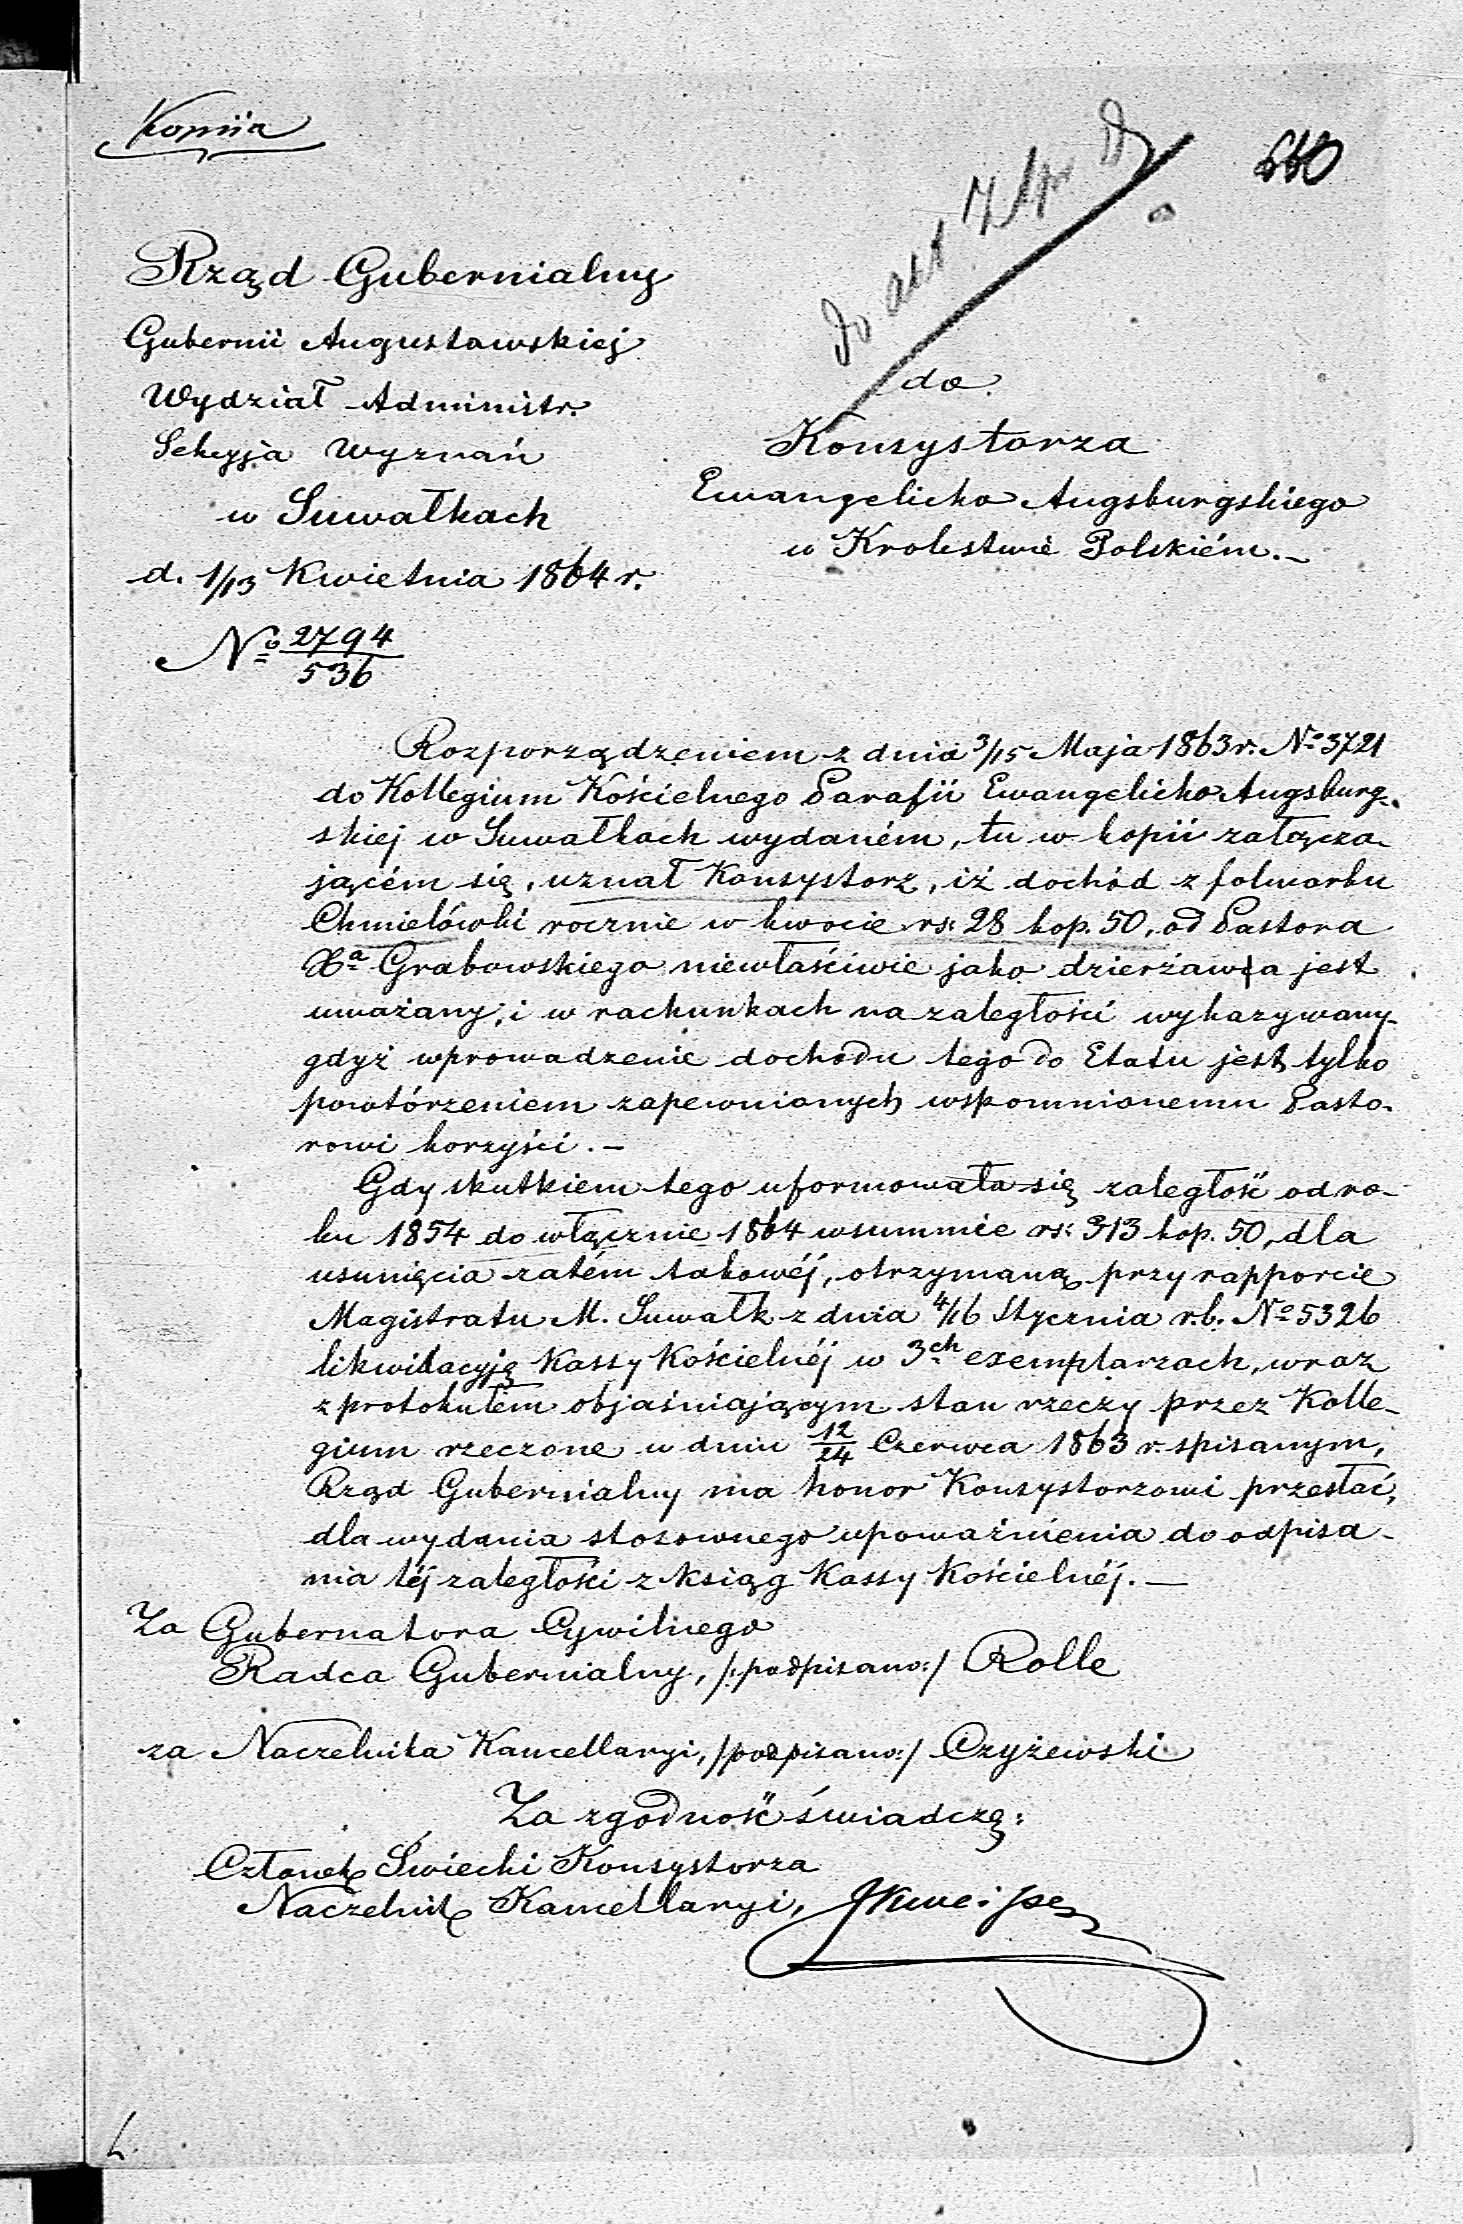 Kopiia
do akt
660
Rząd Gubernialny
Gubernii Augustowskiej
Wydział Administr.
Sekcyja Wyznań
w Suwałkach
d. 1/13 Kwietnia 1864 r.
No 2794/536
do
Konsystorza
Ewangelicko Augsburgskiego
w Krolestwie Polskiém. _
Rozporządzeniem z dnia 3/15 Maja 1863 r. No 3721
do Kollegium Kościelnego Parafii Ewangelicko Augsburg-
skiej w Suwałkach wydaném, tu w kopii załącza-
jącém się, uznał Konsystorz, iż dochód z folwarku
Chmielówki rocznie w kwocie rs: 28 kop. 50, od Pastora
Xa Grabowskiego niewłaściwie jako dzierżawa jest
uważany; i w rachunkach na zaległości wykazywany-
gdyż wprowadzenie dochodu tego do Etatu jest tylko
powtórzeniem zapewnionych wspomnionemu Pasto-
rowi korzyści. —
Gdy skutkiem tego uformowała się zaległość od ro-
ku 1854 do włącznie 1864 w summie rs: 313 kop. 50, dla
usunięcia zatém takowéj, otrzymaną przy rapporcie
Magistratu M. Suwałk z dnia 4/16 Stycznia r.b. No 5326
likwidacyję Kassy Kościelnéj w 3ch exemplarzach, wraz
z protokułem objaśniającym stan rzeczy przez Kolle-
gium rzeczone w dniu 12/24 Czerwca 1863 r. spisanym,
Rząd Gubernialny ma honor Konsystorzowi przesłać,
dla wydania stosownego upoważnienia do odpisa-
nia téj zaległości z ksiąg Kassy Kościelnéj. —
Za Gubernatora Cywilnego
Radca Gubernialny, /:podpisano:/ Rolle
za Naczelnika Kancellaryi, /podpisano:/ Czyżewski
Za zgodność świadczę:
Członek Świecki Konsystorza
Naczelnik Kancellaryi,